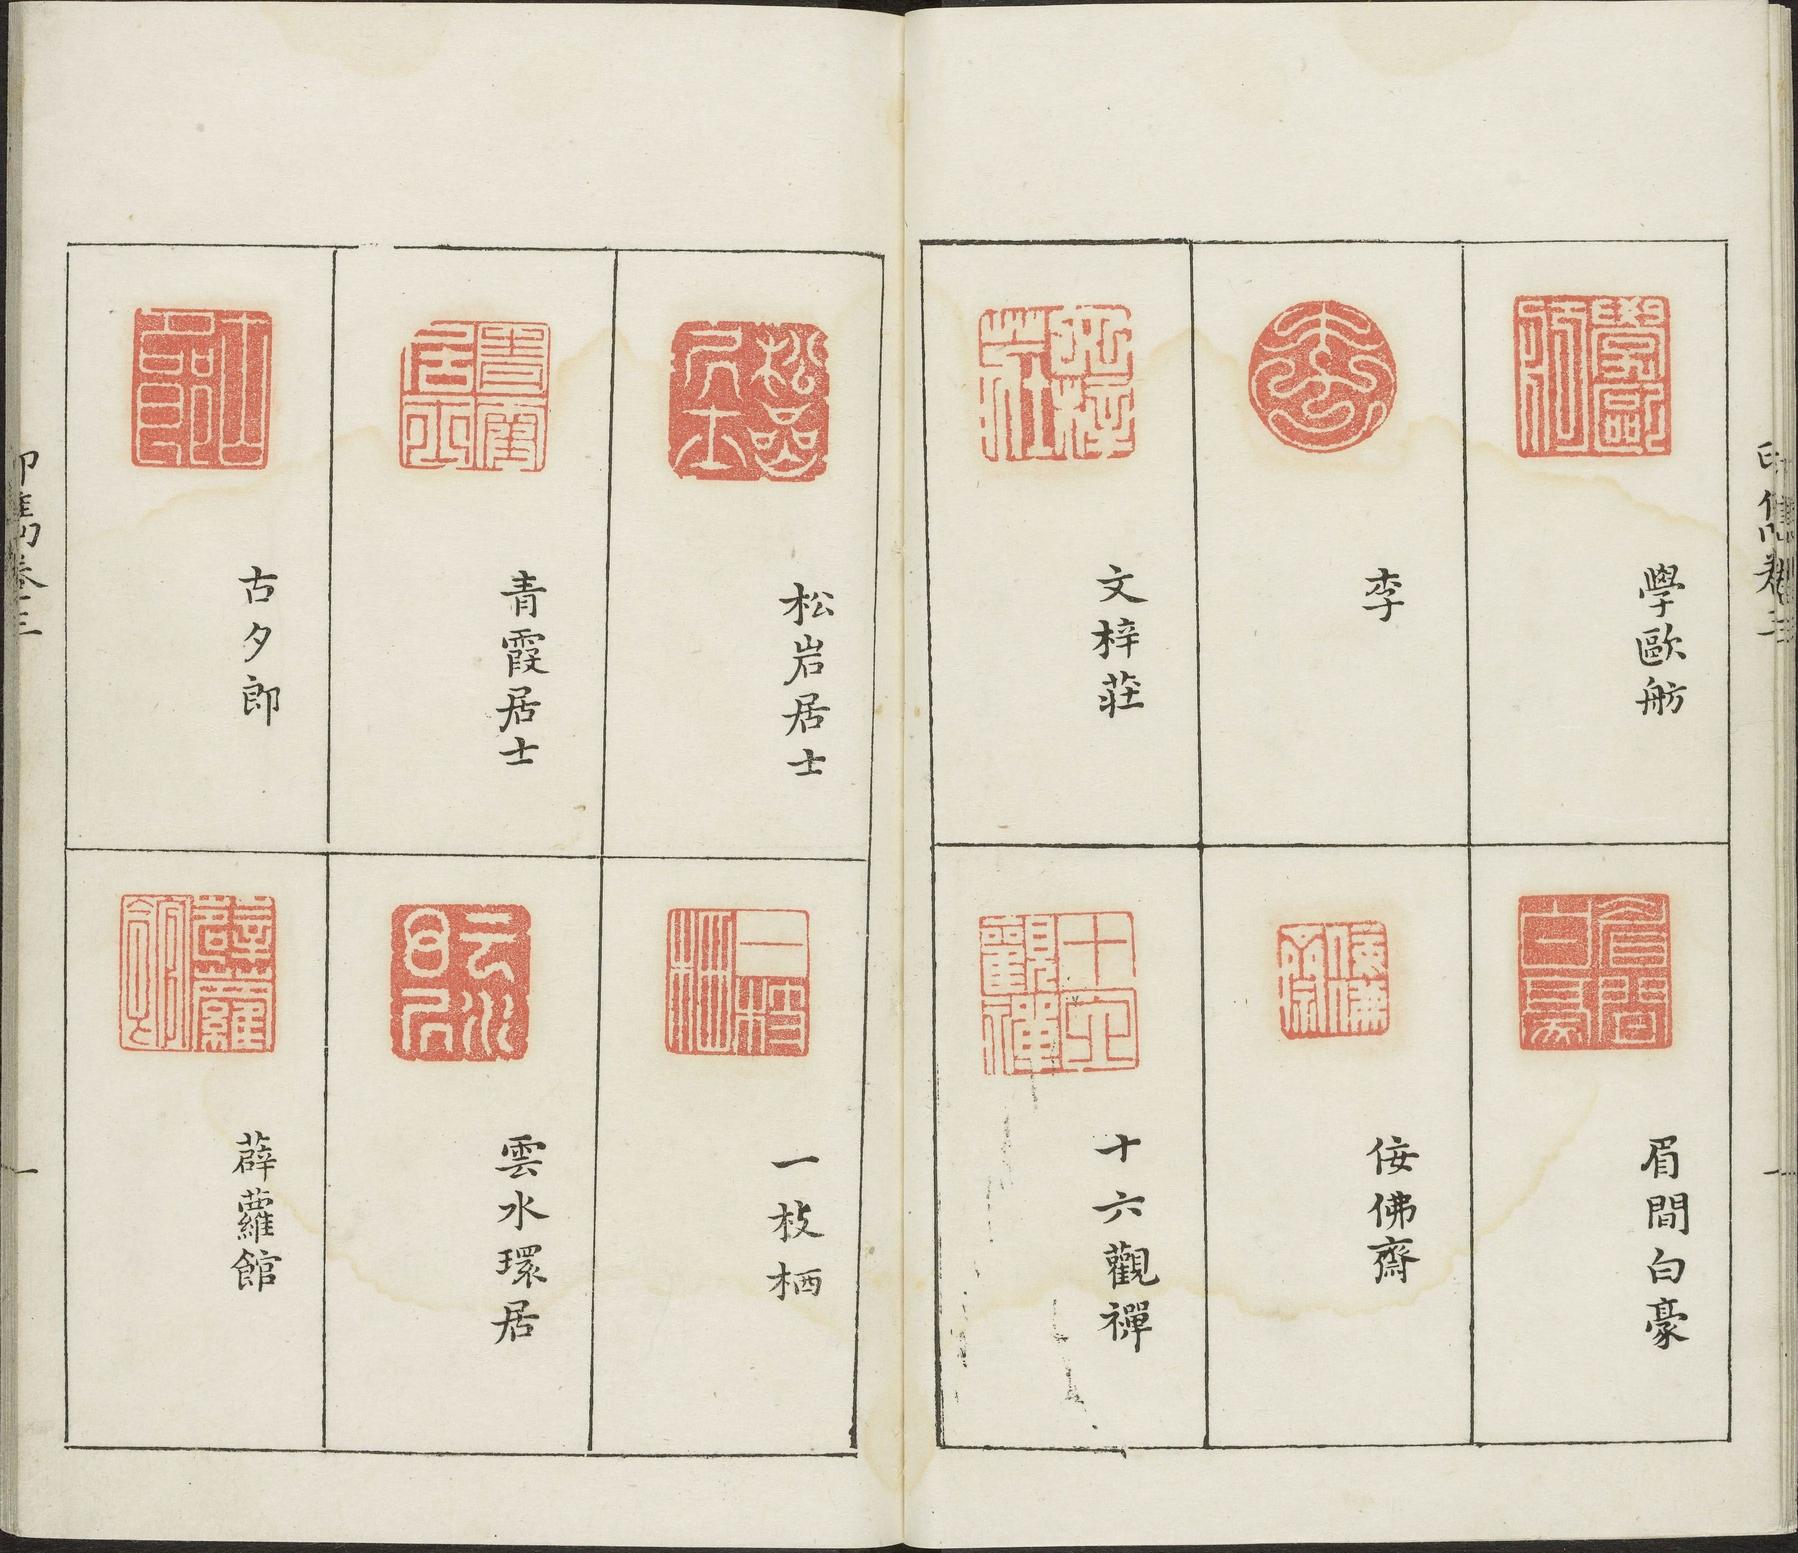 印雋卷三
學歐舫
李
文梓莊
眉間白豪
佞佛齋
十六觀禪
松岩居士
青霞居士
古夕郎
一枝栖
雲水環居
薜蘿館
印雋卷三